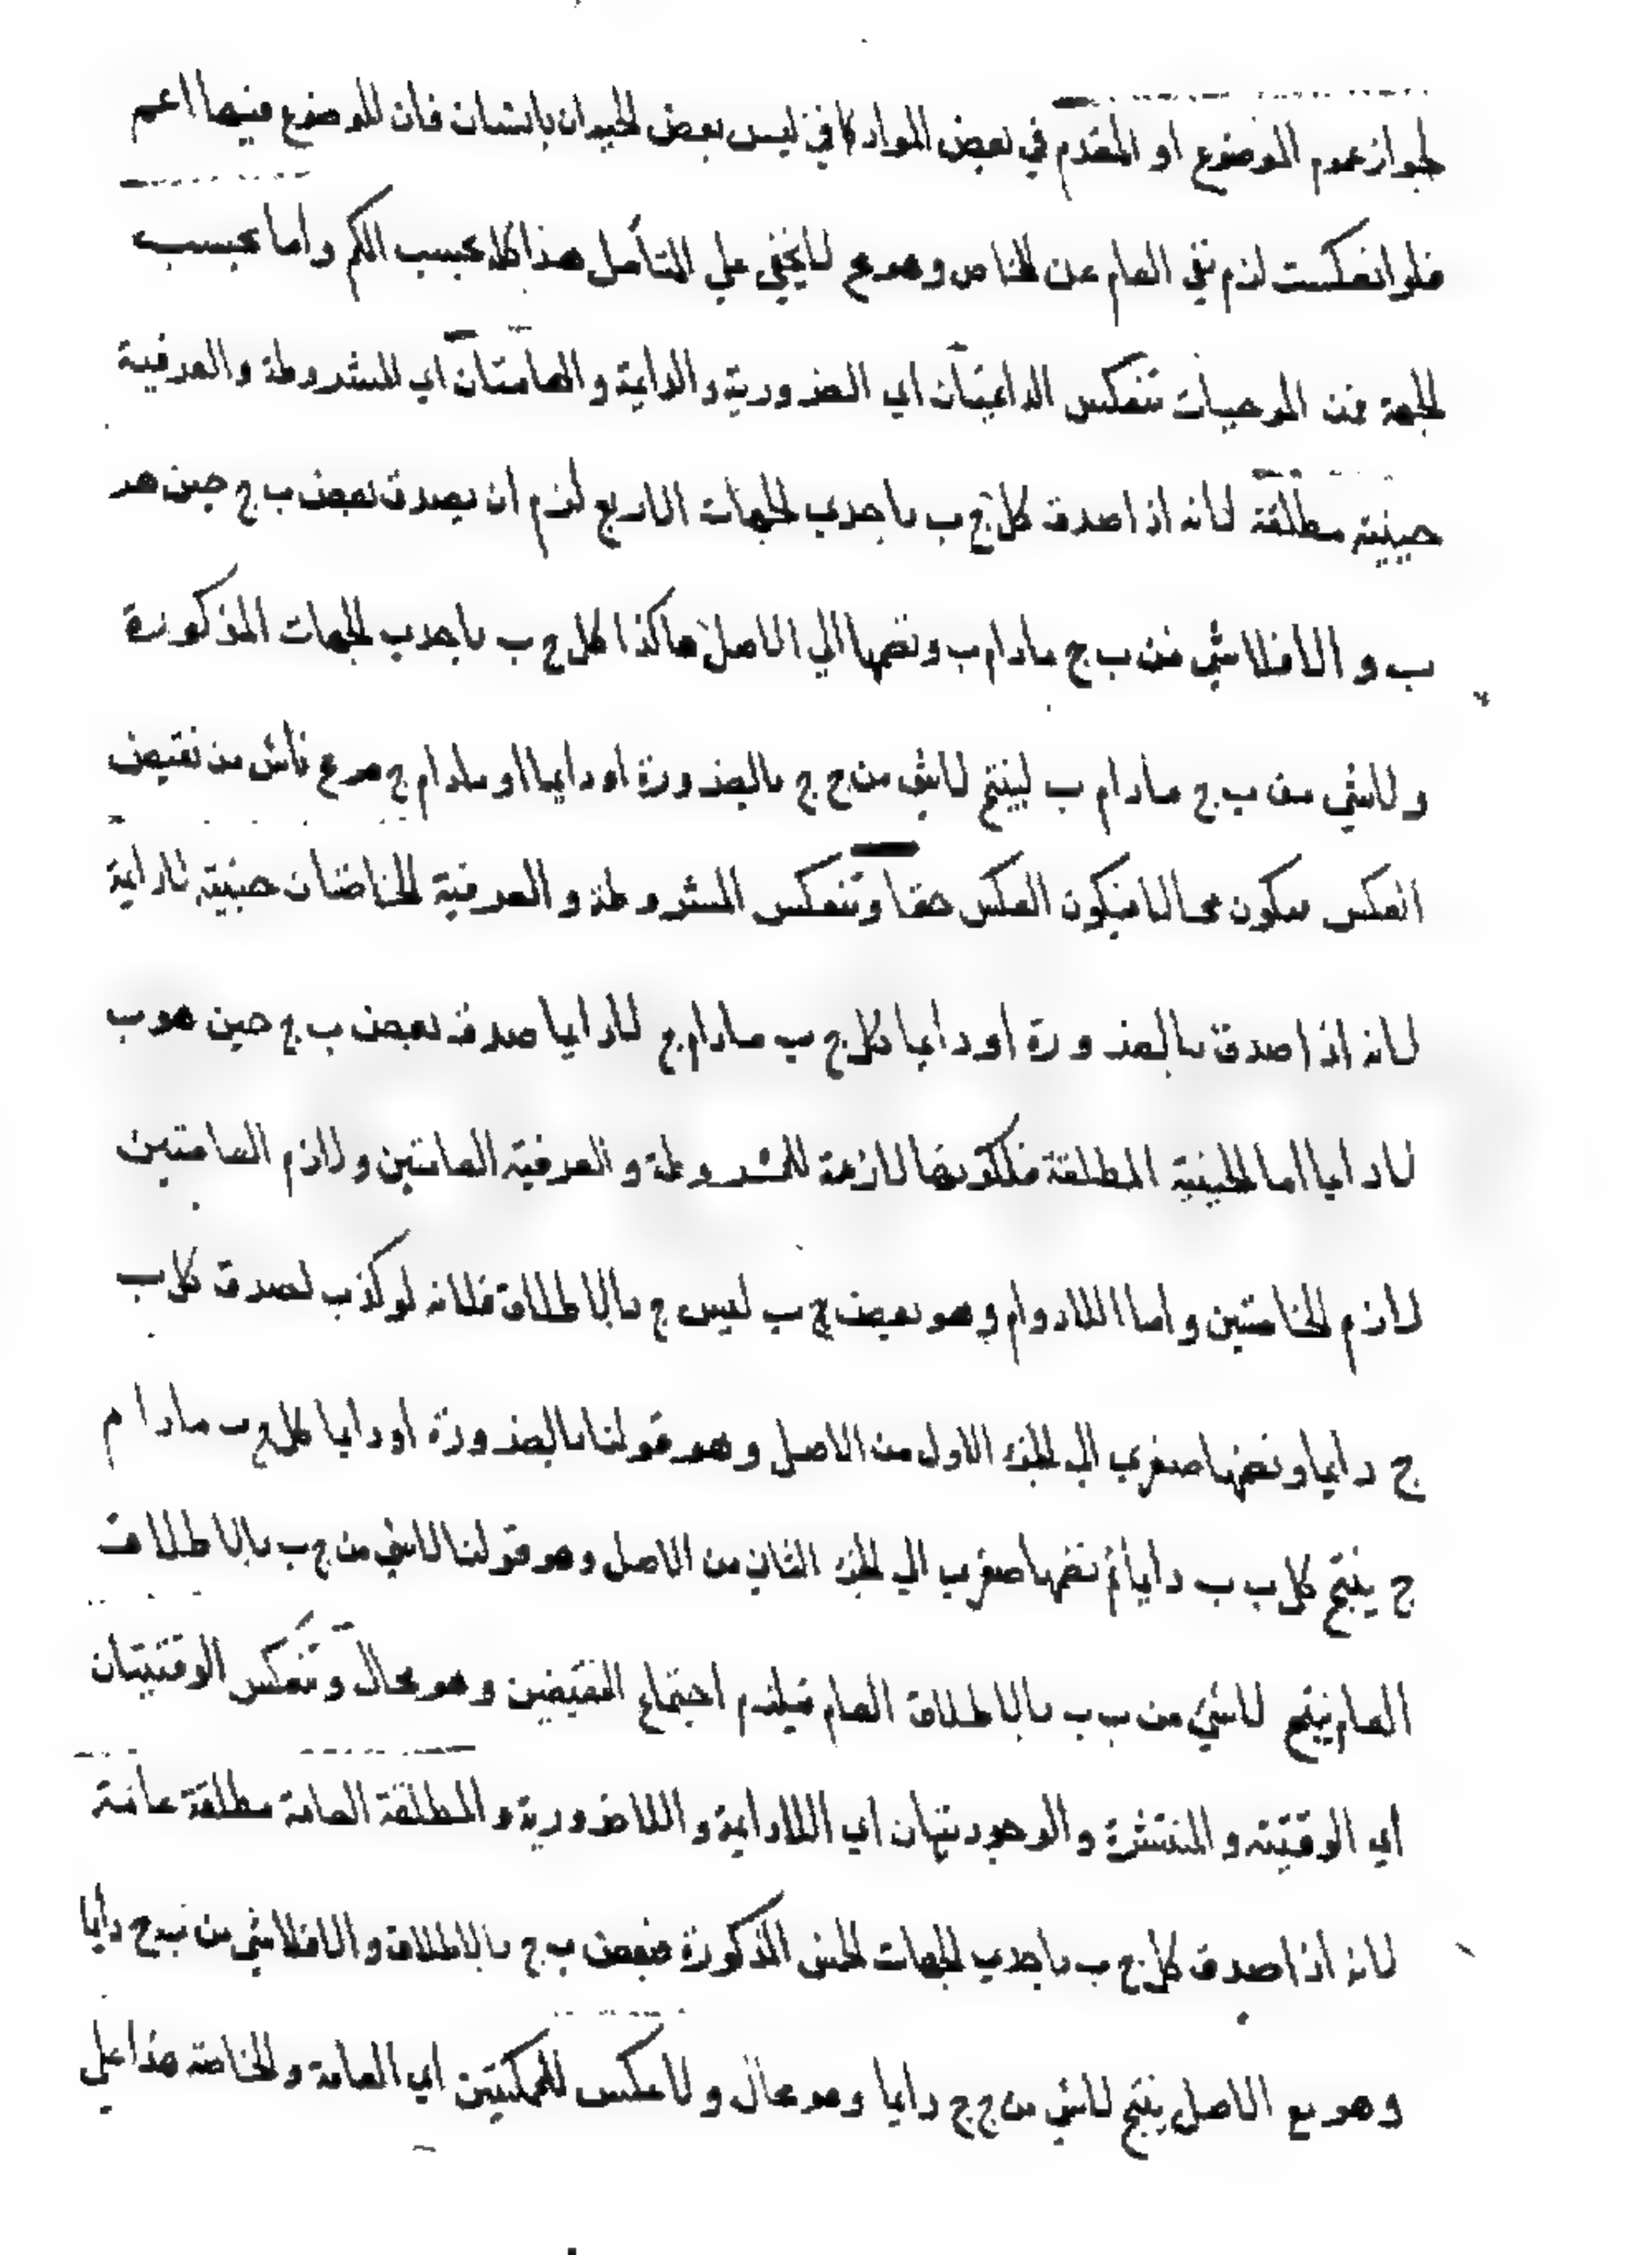 لجواز عموم الموضوع او المقدم في بعض المواد كما في ليس بعض الحيوان بانسان فان الموضوع فيها اعم
فلو انعكست لزم نفي العام عن الخاص وهو مح لا يخفي علي المتأمل هذا كله بحسب الكم واما بحسب
الجهة فمن الموجبات تنعكس الدائمتان اي الضرورية والدايمة والعامتان اي المشروطة والعرفية
حينية مطلقة لانه اذا صدق كل ج ب باحدي الجهات الاربع لزم ان يصدق بعض ب ج حين هو
ب و الا فلا شي من ب ج مادام ب ونضمها الي الاصل هاكذا كل ج ب باحدي الجهات المذكورة
و لا شي من ب ج مادام ب لينتج لا شي من ج ج بالضرورة او دايما او مادام ج هو مح ناش من نقيض
العكس فيكون محالا فيكون العكس حقا وتنعكس المشروطة و العرفية الخاصتان حينية لا دايمة
لانه اذا صدق بالضرورة او دايما كل ج ب مادام ج لا دايما صدق بعض ب ج حين هو ب
لا دايما اما الحينية المطلقة فلكونها لازمة للمشروطة و العرفية العامتين ولازم العامتين
لازم الخاصتين واما اللادوام وهو بعض ج ب ليس ج بالاطلاق فلانه لو كذب لصدق كل ب
ج دايما ونضمها صغري الي الجزء الاول من الاصل وهو قولنا بالضرورة او دايما كل ج ب مادام
ج ينتج كل ب ب دايما ثم نضمها صغري الي الجزء الثاني من الاصل وهو قولنا لا شي من ج ب بالاطلاق
العام ينتج لا شي من ب ب بالاطلاق العام فيلزم اجتماع النقيضين وهو محال وتنعكس الوقتيتان
اي الوقتية و المنتشرة والوجوديتان اي اللادايمة و اللاضرورية والمطلقة العامة مطلقة عامة
لانه اذا صدق كل ج ب باحدي الجهات الخمس المذكورة فبعض ب ج بالاطلاق والا فلا شي من ب ج دايما
وهو مع الاصل ينتج لا شي من ج ج دايما وهو محال ولا عكس للممكنتين اي العامة والخاصة هذا علي